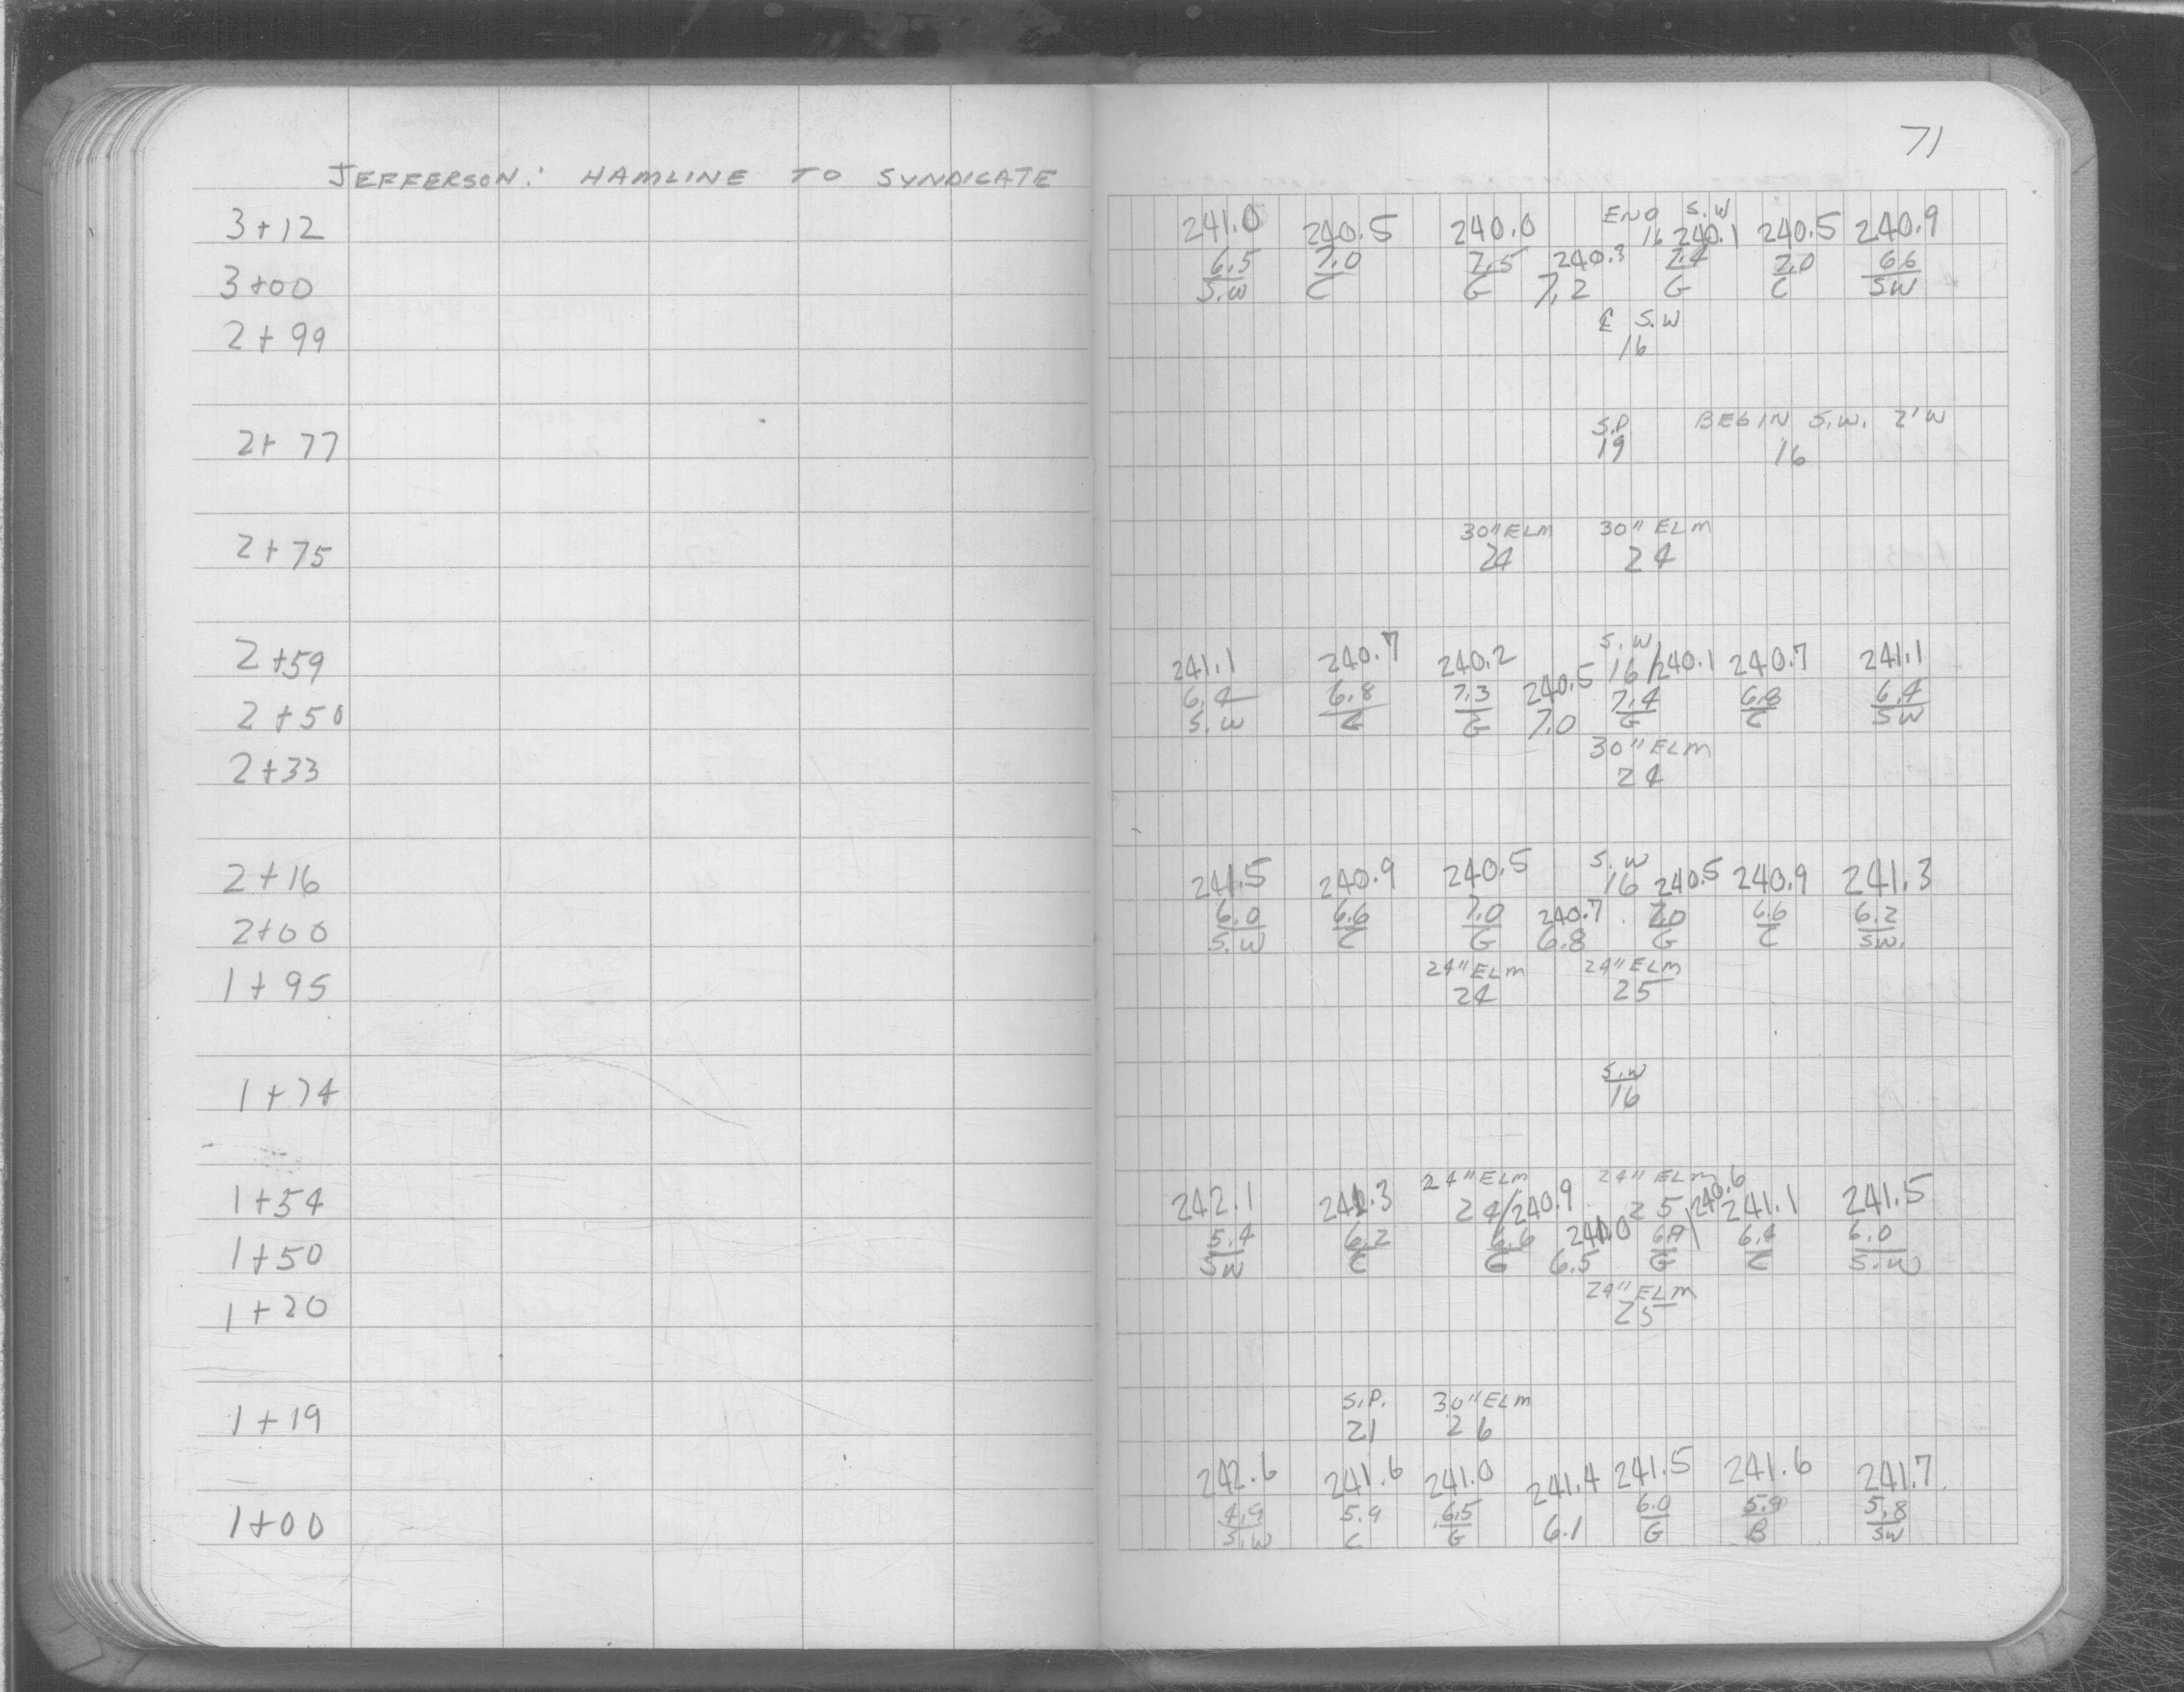 71
JEFFERSON: HAMLINE TO SYNDICATE
3+12 241.0 240.5 240.0 END S.W 16 240.1 240.5 240.9
3+00 6.5 7.0 7.5 240.3 7.4 7.0 6.6
S.W C G 7.2 G C SW
2+99 ℄ S.W
16
2+77 S.P BEGIN S.W. 2'W
19 16
2+75 30" ELM 30" ELM
24 24
2+59 241.1 240.7 240.2 S.W 16/240.1 240.7 241.1
2+50 6.4 6.8 7.3 240.5 7.4 6.8 6.4
S.W C G 7.0 G C SW
2+33 30" ELM
24
2+16 241.5 240.9 240.5 S.W 16 240.5 240.9 241.3
2+00 6.0 6.6 7.0 240.7 7.0 6.6 6.2
S.W C G 6.8 G C SW.
1+95 24" ELM 24" ELM
24 25
1+74 S.W
16
1+54 24" ELM 24" ELM
242.1 241.3 24/240.9 25 240.6 241.1 241.5
1+50 5.4 6.2 6.6 241.0 6.9 6.4 6.0
SW C G 6.5 G C S.W
1+20 24" ELM
25
1+19 S.P. 30" ELM
21 26
242.6 241.6 241.0 241.4 241.5 241.6 241.7
1+00 4.9 5.9 6.5 6.1 6.0 5.9 5.8
S.W C G G B SW